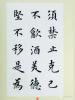 須禁止克己
不飲酒美德
堅不移是為